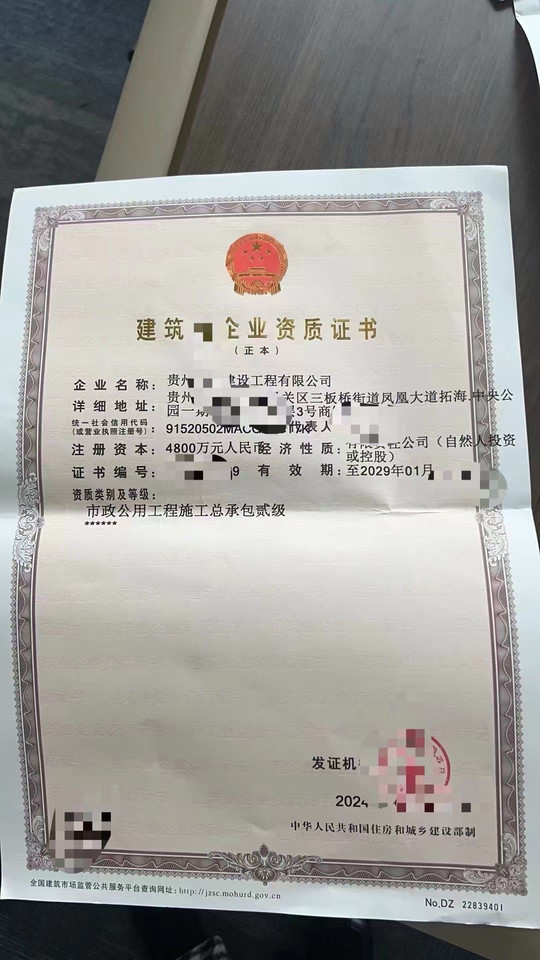 建筑 企业资质证书
(正本)
企业名称: 贵州 建设工程有限公司
详细地址: 贵州 关区三板桥街道凤凰大道拓海.中央公
园一期 3号商
统一社会信用代码
(或营业执照注册号): 91520502MAC 代表人
注册资本: 4800万元人民币 经济性质: 有限责任公司(自然人投资
或控股)
证书编号: 9 有效期: 至2029年01月
资质类别及等级:
市政公用工程施工总承包贰级
******
发证机
2024
中华人民共和国住房和城乡建设部制
全国建筑市场监管公共服务平台查询网址: http://jzsc.mohurd.gov.cn
No.DZ 22839401